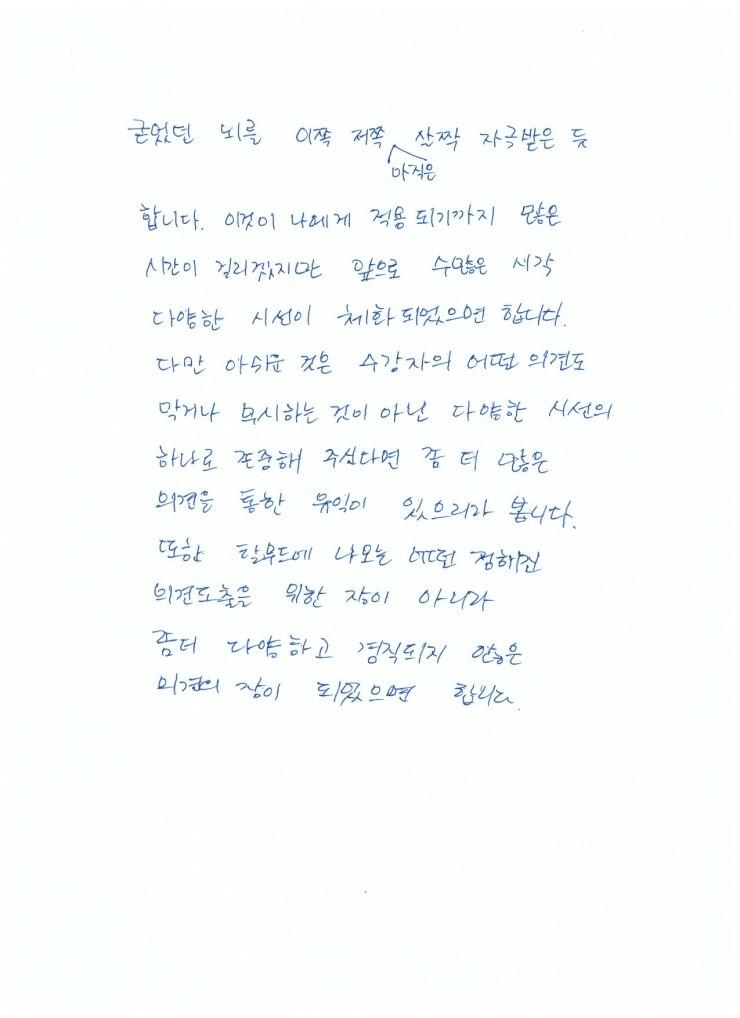 굳었던 뇌를 이쪽 저쪽 살짝 자극받은 듯
아직은
합니다. 이것이 나에게 적용되기까지 많은
시간이 걸리겠지만 앞으로 수많은 시각
다양한 시선이 체화되었으면 합니다.
다만 아쉬운 것은 수강자의 어떤 의견도
막거나 무시하는 것이 아닌 다양한 시선의
하나로 존중해 주신다면 좀 더 많은
의견을 통한 유익이 있으리라 봅니다.
또한 탈무드에 나오는 어떤 정해진
의견도출을 위한 장이 아니라
좀더 다양하고 경직되지 않은
의견의 장이 되었으면 합니다.